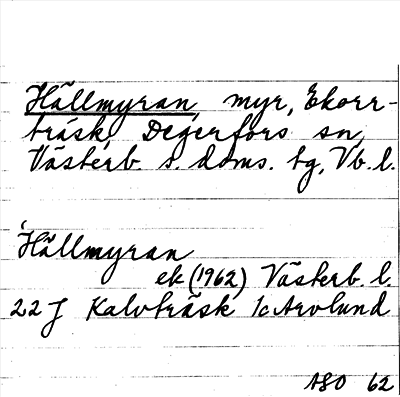 Hällmyran, myr, Ekorr-
träsk, Degerfors sn,
Västerb. s. doms. tg, Vb. l.
Hällmyran
ek (1962) Västerb. l.
22 J Kalvträsk 1c Arvlund
ASO 62